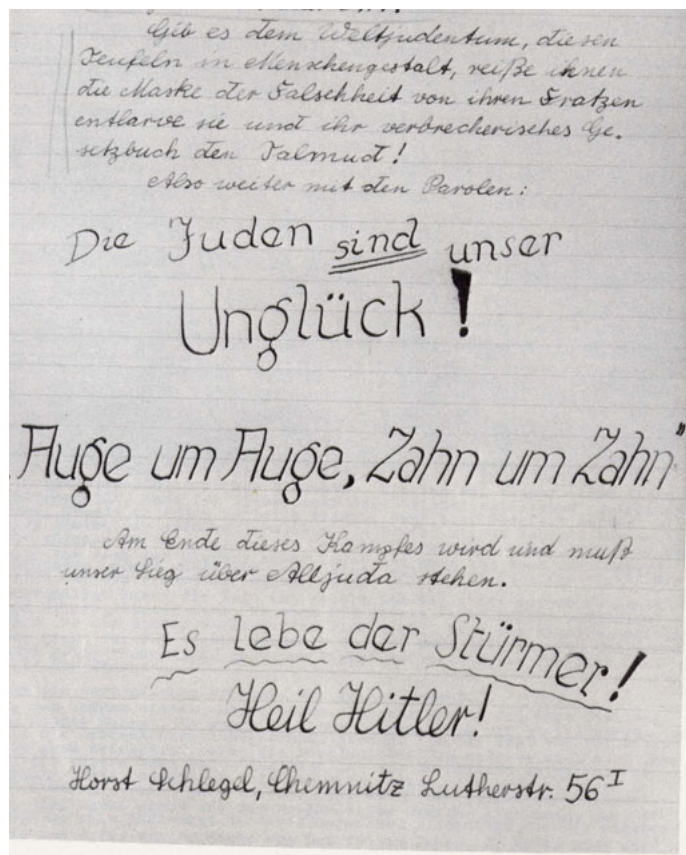 Gib es dem Weltjudentum, diesen
Teufeln in Menschengestalt, reiße ihnen
die Maske der Falschheit von ihren Fratzen
entlarve sie und ihr verbrecherisches Ge-
setzbuch den Talmud!
Also weiter mit den Parolen:
Die Juden sind unser
Unglück!
Auge um Auge, Zahn um Zahn"
Am Ende dieses Kampfes wird und muß
unser Sieg über Alljuda stehen.
Es lebe der Stürmer!
Heil Hitler!
Horst Schlegel, Chemnitz Lutherstr. 56 I